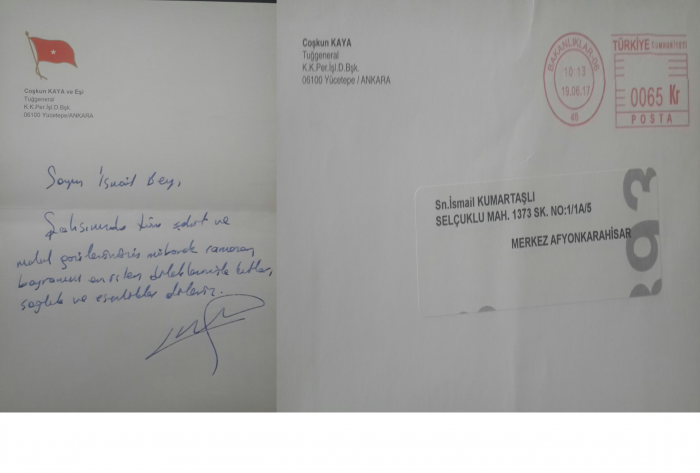 Coşkun KAYA ve Eşi
Tuğgeneral
K.K.Per.İşl.D.Bşk.
06100 Yücetepe/ANKARA
Sayın İsmail Bey,
Şahsınızda tüm şehit ve
malul gazilerimizin mübarek ramazan
bayramını en içten dileklerimizle kutlar,
sağlık ve esenlikler dileriz.
Coşkun KAYA
Tuğgeneral
K.K.Per.İşl.D.Bşk.
06100 Yücetepe / ANKARA
BAKANLIKLAR-06
10:13
19.06.17
46
TÜRKİYE CUMHURİYETİ
0065 Kr
POSTA
Sn.İsmail KUMARTAŞLI
SELÇUKLU MAH. 1373 SK. NO:1/1A/5
MERKEZ AFYONKARAHİSAR